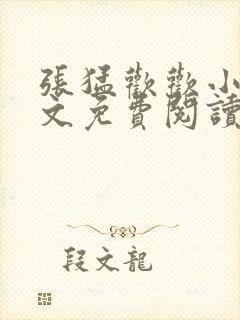 張猛歡歡小
文免費閱讀
段文龍